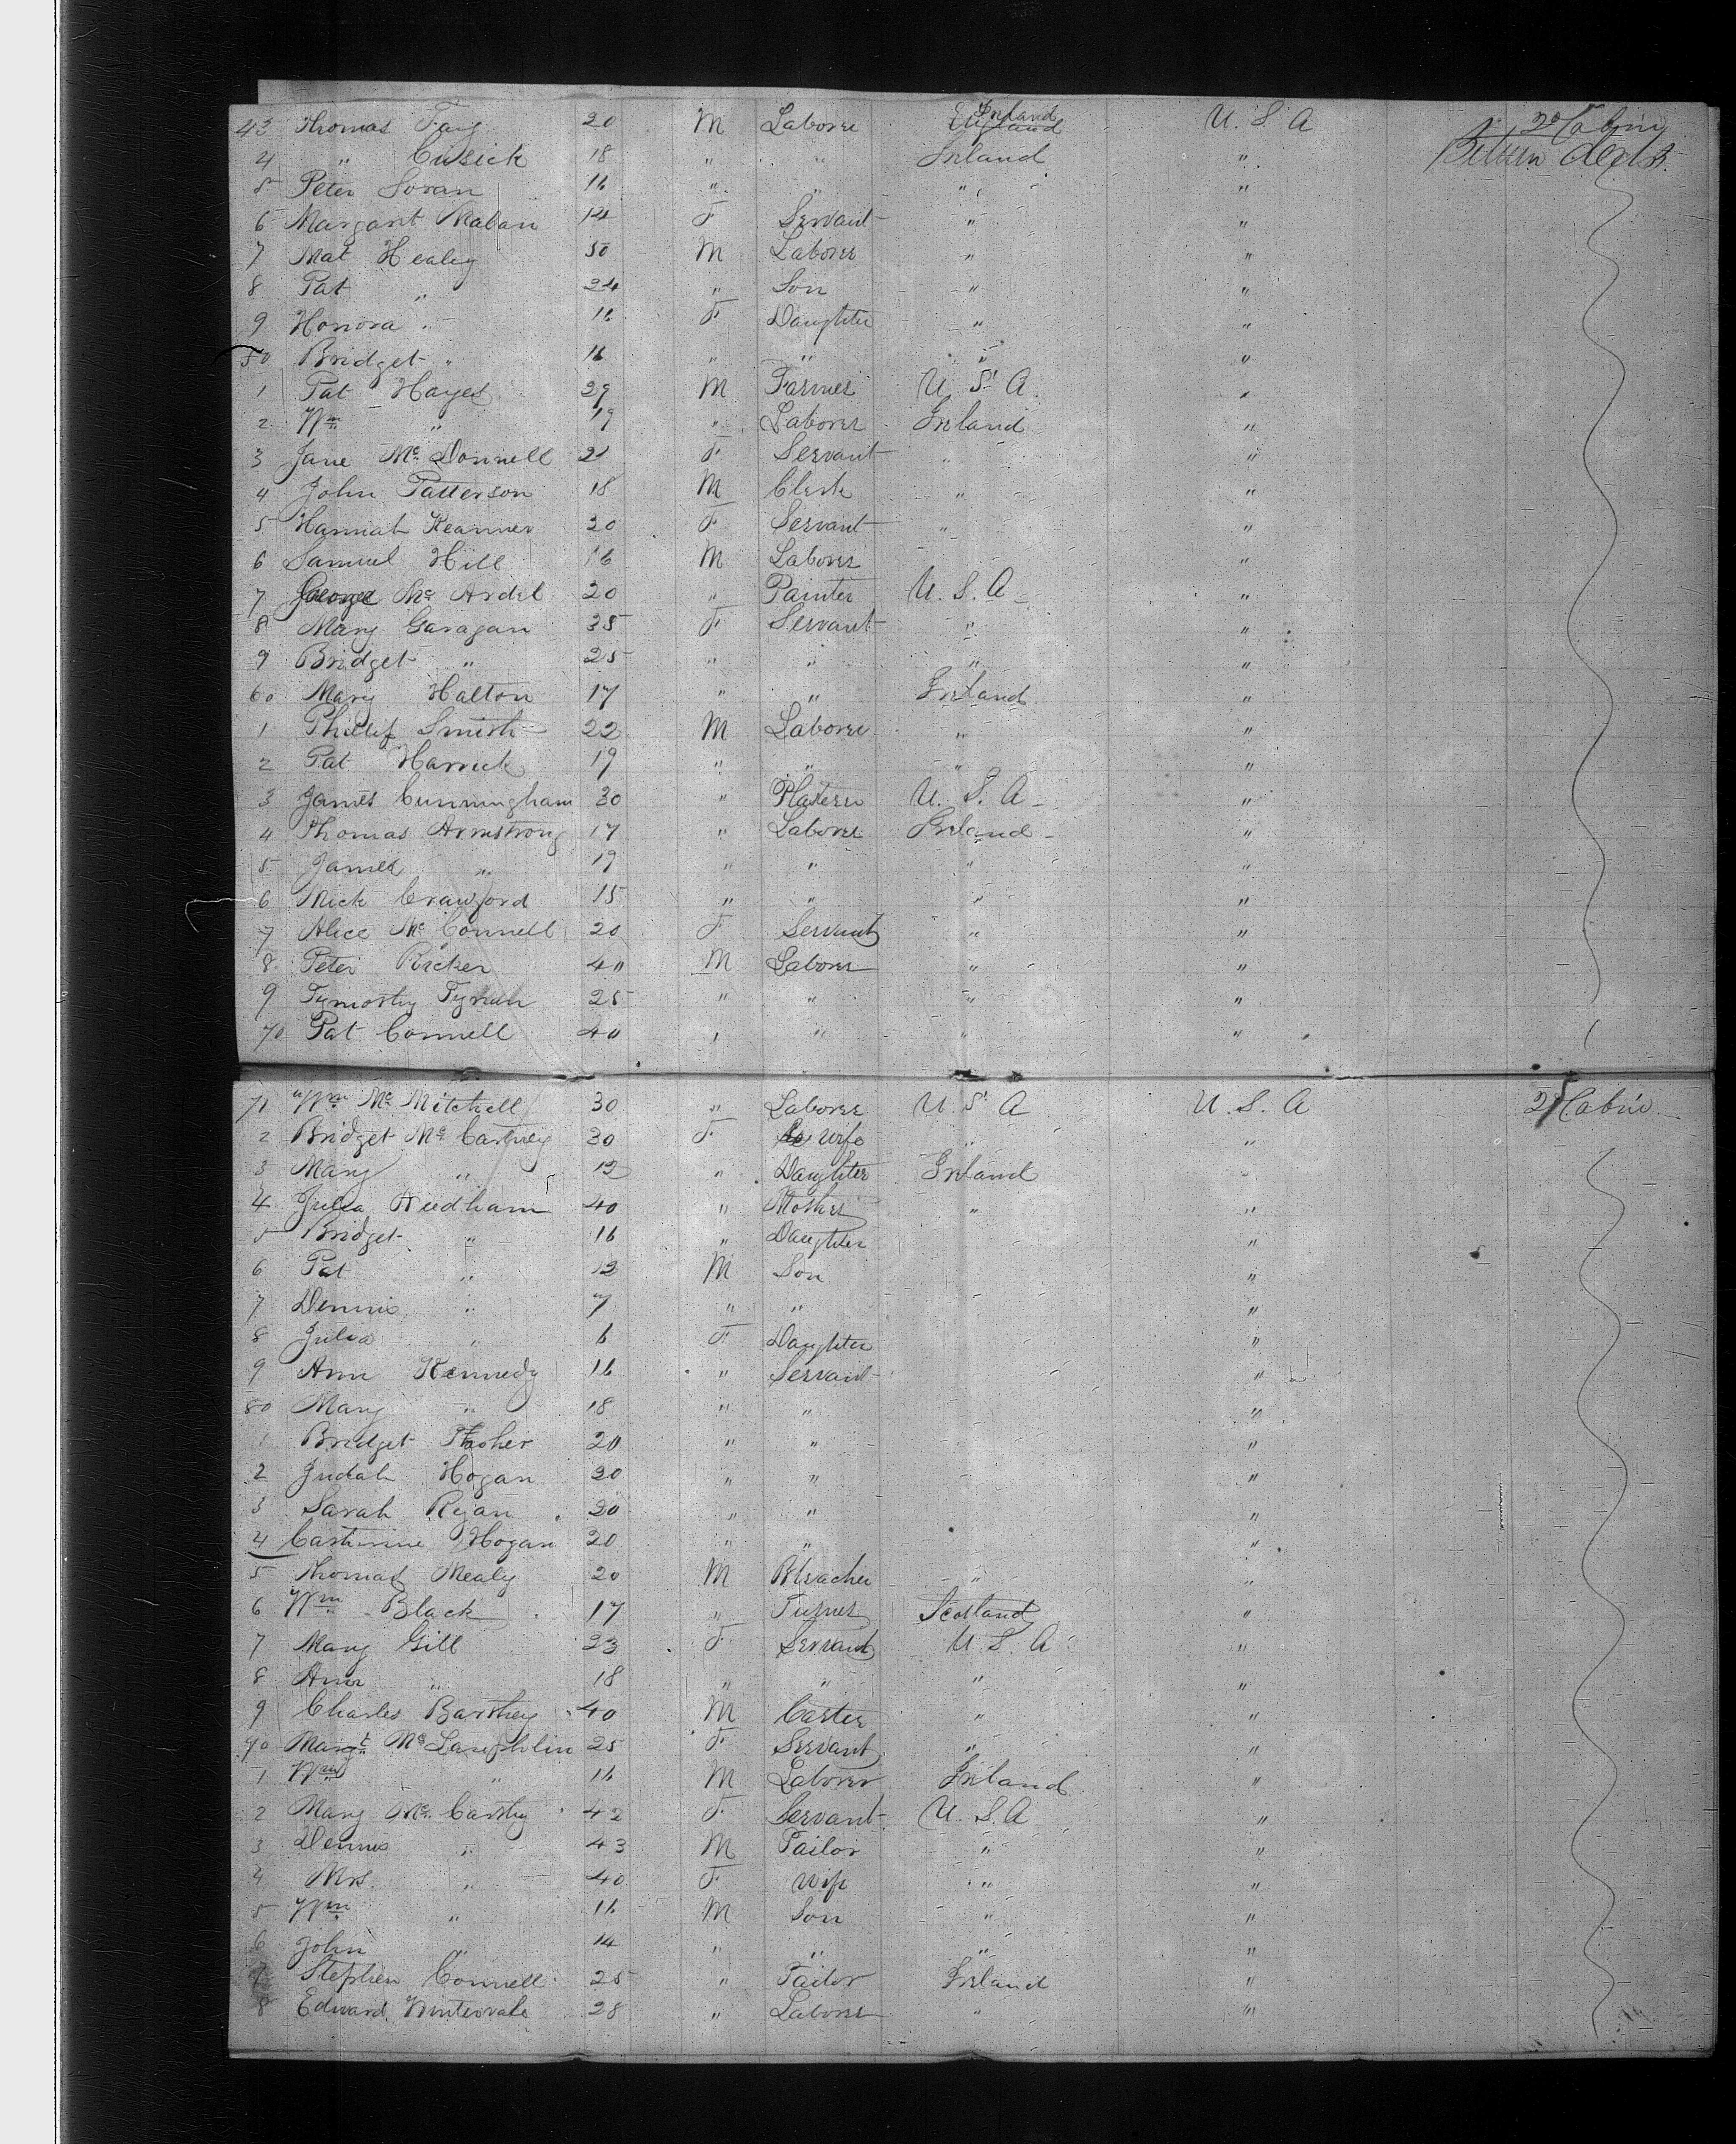 43 Thomas Fay 20 M Laborer Ireland England U. S. A 2d Cabin
4 " Cusick 18 " " Ireland " Between decks
5 Peter Soran 16 " " " "
6 Margaret Mahan 14 F Servant " "
7 Mat Healey 50 M Laborer " "
8 Pat " 24 " Son " "
9 Honora " 16 F Daughter " "
50 Bridget " 16 " " " "
1 Pat Hayes 29 M Farmer U. S. A. "
2 Wm " 19 " Laborer Ireland "
3 Jane Mc Donnell 21 F Servant " "
4 John Patterson 18 M Clerk " "
5 Hannah 20 F Servant " "
6 Samuel Hill 16 M Laborer "
7 George Mc Ardel 20 " Painter U. S. A "
8 Mary Garagan 35 F Servant " "
9 Bridget " 25 " " " "
60 Mary Halton 17 " " Ireland "
1 Phillip Smith 22 M Laborer " "
2 Pat 19 " " " "
3 James Cunningham 30 " Plasterer U. S. A "
4 Thomas Armstrong 17 " Laborer Ireland "
5 James " 19 " " " "
6 Mick Crawford 15 " " " "
7 Alice Mc Connell 20 F Servant " "
8 Peter Ricker 40 M Laborer " "
9 Tymothy 25 " " " "
70 Pat Connell 40 " " " "
71 Wm Mc Mitchell 30 " Laborer U. S. A U. S. A 2d Cabin
2 Bridget Mc Cartney 30 F Wife " "
3 Mary " 12 " Daughter Ireland "
4 Julia Needham 40 " Mother " "
5 Bridget " 16 " Daughter "
6 Pat " 12 M Son "
7 Dennis " 7 " " "
8 Julia " 6 F Daughter "
9 Ann Kennedy 16 " Servant "
80 Mary " 18 " " "
1 Bridget 20 " " "
2 Judah Hogan 20 " " "
3 Sarah Ryan 20 " " "
4 Catherine Hogan 20 " " "
5 Thomas Mealy 20 M Bleacher " "
6 Wm Black 17 " Turner Scotland "
7 Mary Gill 23 F Servant U. S. A "
8 Ann " 18 " " " "
9 Charles Barthey 40 M Carter " "
90 Margt McLaughlin 25 F Servant " "
1 Wm " 16 M Laborer Ireland "
2 Mary Mc Carthy 42 F Servant U. S. A "
3 Dennis " 43 M Tailor " "
4 Mrs. " 40 F Wife " "
5 Wm " 16 M Son " "
6 John " 14 " " " "
7 Stephen Connell 25 " Tailor Ireland "
8 Edward 28 " Laborer " "